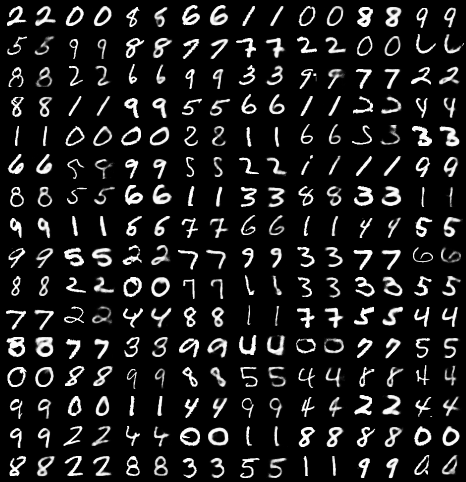 2 2 0 0 8 8 6 6 1 1 0 0 8 8 9 9
5 5 9 9 8 8 7 7 7 7 2 2 0 0
8 8 2 2 6 6 9 9 3 3 9 9 7 7 2 2
8 8 1 1 9 9 5 5 6 6 1 1 2 2 4 4
1 1 0 0 0 0 2 8 1 1 6 6 5 3 3 3
6 6 5 9 9 5 5 2 2 1 1 1 1 9 9
8 8 5 5 6 6 1 1 3 3 8 8 3 3 1 1
9 9 1 1 6 6 7 7 6 6 1 1 4 4 5 5
9 9 5 5 2 2 7 7 9 9 3 3 7 7 6 6
8 8 2 2 0 0 7 7 1 1 3 3 3 3 5 5
7 7 2 2 4 4 8 8 1 1 7 7 5 5 4 4
8 8 7 7 3 3 9 9 4 4 0 0 7 7 5 5
0 0 8 8 9 9 8 8 5 5 4 4 8 8 4 4
9 9 0 0 1 1 4 4 9 9 4 4 2 2 4 4
9 9 2 2 4 4 0 0 1 1 8 8 8 8 0 0
8 8 2 2 8 8 3 3 5 5 1 1 9 9